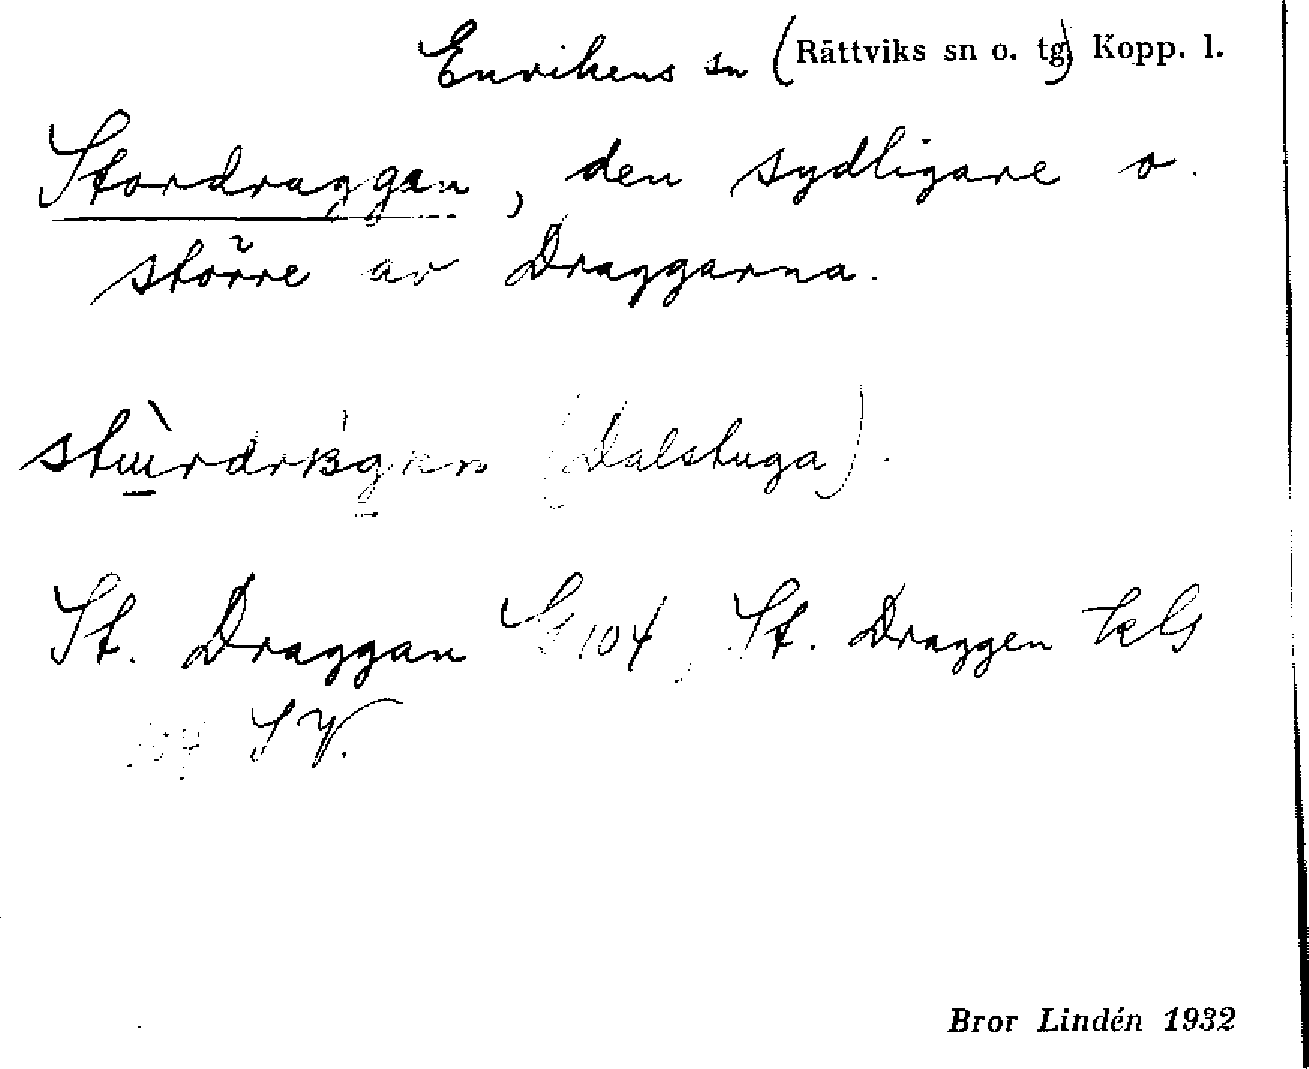 Envikens sn (Rättviks sn o. tg) Kopp. l.
Stordraggan, den sydligare o.
större av Draggarna.
(Dalstuga).
St. Draggan G 104, St. Draggen
104 SV.
Bror Lindén 1932